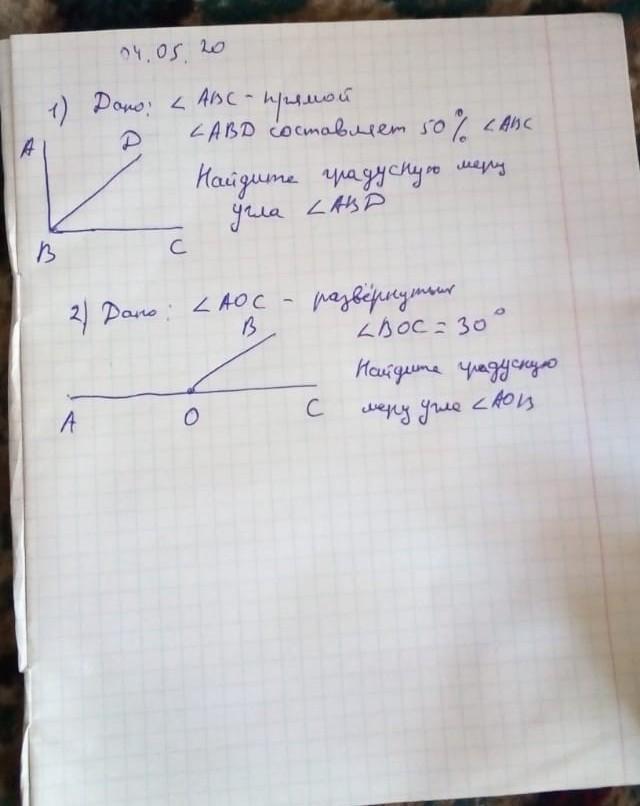 04.05.20
1) Дано: ∠ABC - прямой
∠ABD составляет 50% ∠ABC
Найдите градусную меру
угла ∠ABD
A
D
B
C
2) Дано: ∠AOC - развёрнутый
∠BOC = 30°
Найдите градусную
меру угла ∠AOB
B
A
O
C